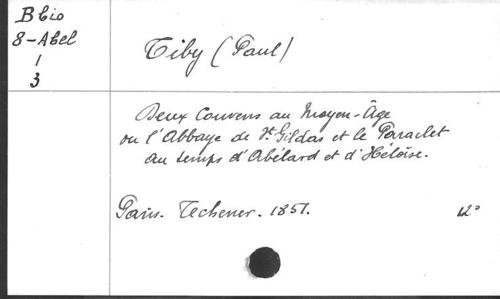 B bio
8-Abel
1
3
Tiby (Paul)
Deux Couvens au Moyen-Âge
ou l'Abbaye de St. Gildas et le Paraclet
au temps d'Abélard et d'Héloïse.
Paris. Techener. 1851. 12°